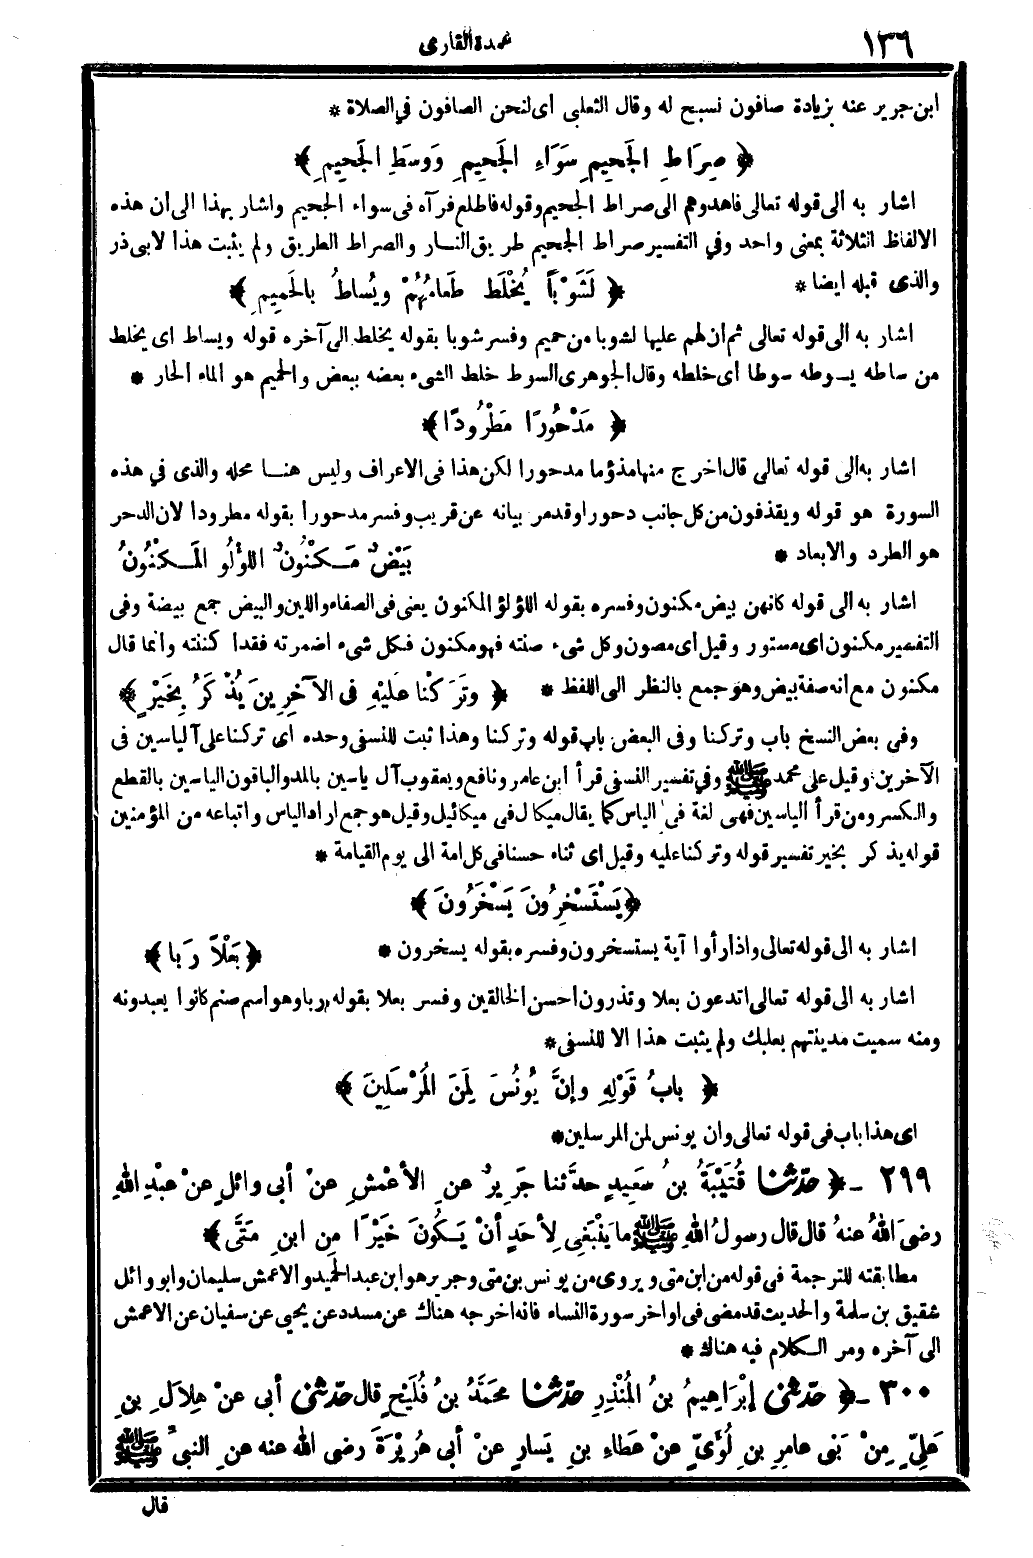 ١٣٦ عمدة القارى
ابن جرير عنه بزيادة صافون نسبح له وقال الثعلبى اى لنحن الصافون فى الصلاة *
﴿ صِرَاطِ الجَحِيمِ سَوَاءِ الجَحِيمِ وَوَسَطِ الجَحِيمِ ﴾
اشار به الى قوله تعالى فاهدوهم الى صراط الجحيم وقوله فاطلع فرآه فى سواء الجحيم واشار بهذا الى ان هذه
الالفاظ الثلاثة بمعنى واحد وفي التفسير صراط الجحيم طريق النار والصراط الطريق ولم يثبت هذا لابى ذر
والذى قبله ايضا * ﴿ لَشَوْبًا يُخْلَط طَعَامُهُمْ ويُساطُ بالحَمِيمِ ﴾
اشار به الى قوله تعالى ثم ان لهم عليها لشوبا من حميم وفسر شوبا بقوله يخلط الى آخره قوله ويساط اى يخلط
من ساطه يسوطه سوطا أى خلطه وقال الجوهرى السوط خلط الشىء بعضه ببعض والحميم هو الماء الحار *
﴿ مَدْحُورًا مَطْرُودًا ﴾
اشار به الى قوله تعالى قال اخرج منها مذؤما مدحورا لكن هذا فى الاعراف وليس هنا محله والذى فى هذه
السورة هو قوله ويقذفون من كل جانب دحورا وقد مر بيانه عن قريب وفسر مدحورا بقوله مطرودا لان الدحر
هو الطرد والابعاد * بَيْضٌ مَكْنُونٌ اللؤلُو المَكْنُونُ
اشار به الى قوله كانهن بيض مكنون وفسره بقوله اللؤلؤ المكنون يعنى فى الصفاء واللين والبيض جمع بيضة وفى
التفسير مكنون اى مستور وقيل أى مصون وكل شىء صنته فهو مكنون فكل شىء اضمرته فقدا كننته وانما قال
مكنون مع انه صفة بيض وهو جمع بالنظر الى اللفظ * ﴿ وتَرَكْنا عَلَيْهِ فى الآخِرِينَ يُذْكَرُ بِخَيْرٍ ﴾
وفى بعض النسخ باب وتركنا وفى البعض باب قوله وتركنا وهذا ثبت للنسفى وحده اى تركنا على آل ياسين فى
الآخرين وقيل على محمد ﷺ وفي تفسير النسفى قرأ ابن عامر ونافع ويعقوب آل ياسين بالمد والباقون الياسين بالقطع
والكسر ومن قرأ الياسين فهى لغة فى الياس كما يقال ميكال فى ميكائيل وقيل هو جمع اراد الياس واتباعه من المؤمنين
قوله يذكر بخير تفسير قوله وتركنا عليه وقيل اى ثناء حسنا فى كل امة الى يوم القيامة *
﴿ يَسْتَسْخِرُونَ يَسْخَرُونَ ﴾
اشار به الى قوله تعالى واذا رأوا آية يستسخرون وفسره بقوله يسخرون * ﴿ بَعْلًا رَبا ﴾
اشار به الى قوله تعالى اتدعون بعلا وتذرون احسن الخالقين وفسر بعلا بقوله ربا وهو اسم صنم كانوا يعبدونه
ومنه سميت مدينتهم بعلبك ولم يثبت هذا الا للنسفى *
﴿ بابُ قَوْلِهِ وإنَّ يُونُسَ لَمِنَ المُرْسَلِينَ ﴾
اى هذا باب فى قوله تعالى وان يونس لمن المرسلين *
٢٩٩ - ﴿ حدّثنا قُتَيْبَةُ بنُ سَعِيدٍ حدثَنا جَرِيرٌ عنِ الأعْمَشِ عنْ أبى وائلٍ عنْ عبْدِ اللهِ
رضىَ اللهُ عنهُ قال قال رسولُ اللهِ ﷺ ما يَنْبَغِى لِأحَدٍ أنْ يَكُونَ خَيْرًا مِن ابنِ مَتَّى ﴾
مطابقته للترجمة فى قوله من ابن متى ويروى من يونس بن متى وجرير هو ابن عبد الحميد والاعمش سليمان وابو وائل
شقيق بن سلمة والحديث قد مضى فى اواخر سورة النساء فانه اخرجه هناك عن مسدد عن يحيى عن سفيان عن الاعمش
الى آخره ومر الكلام فيه هناك *
٣٠٠ - ﴿ حدّثنى إبْرَاهِيمُ بنُ المُنْذِرِ حدّثنا محمَّدُ بنُ فُلَيْحٍ قال حدّثنى أبى عنْ هِلَالِ بنِ
عَلِيٍّ مِنْ بَنى عامِرِ بنِ لُؤَىٍّ عنْ عَطاءِ بنِ يَسارٍ عنْ أبى هُرَيْرَةَ رضى الله عنه عنِ النبىِّ ﷺ
قال